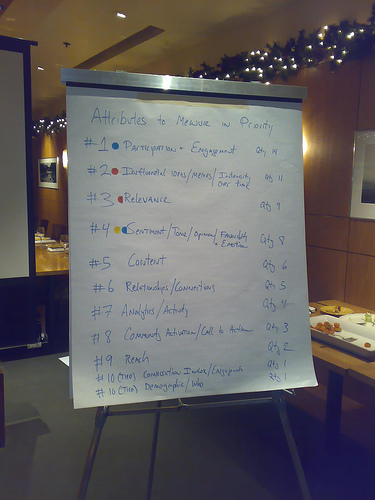 Attributes to Measure in Priority
#1 Participation + Engagement Qty 14
#2 Influential ideas/memes/ Intensity over time Qty 11
#3 Relevance Qty 9
#4 Sentiment/Tone/Opinion/ Favorability + Emotion Qty 8
#5 Content Qty 6
#6 Relationships/Connections Qty 5
#7 Analytics/Activity Qty 4
#8 Community Activation/Call to Action Qty 3
#9 Reach Qty 2
#10 (Tied) Conversation Index/ Qty 1
#10 (Tied) Demographic/Who Qty 1